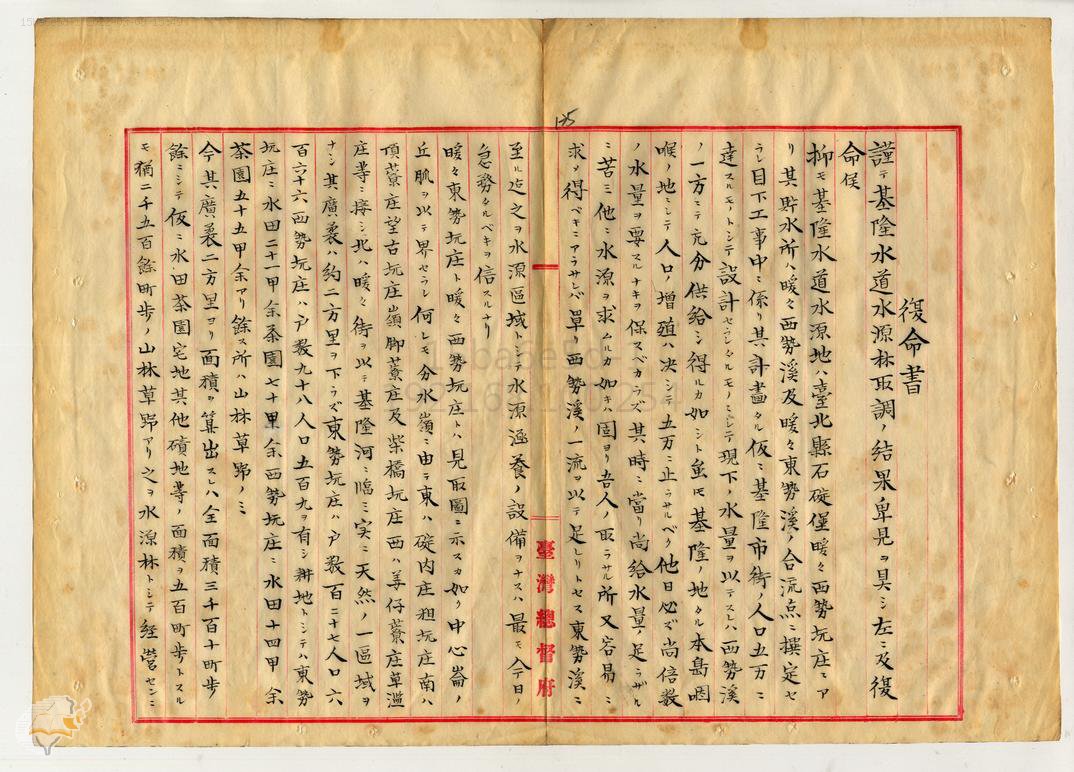 復命書
謹テ基隆水道水源林取調ノ結果卑見ヲ具シ左ニ及復
命候
抑モ基隆水道水源地ハ臺北縣石碇堡暖々西勢坑庄ニア
リ其貯水所ハ暖々西勢溪及暖々東勢溪ノ合流点ニ撰定セ
ラレ目下工事中ニ係リ其計畫タル仮ニ基隆市街ノ人口五万ニ
達スルモノトシテ設計セラレタルモノニシテ現下ノ水量ヲ以テスレハ西勢溪
ノ一方ニテ充分供給シ得ルカ如シト雖モ基隆ノ地タル本島咽
喉ノ地ニシテ人口ノ増殖ハ决シテ五万ニ止ラサルベク他日必ズ尚倍数
ノ水量ヲ要スルナキヲ保スベカラズ其時ニ當リ尚給水量ノ足ラザル
ニ苦ミ他ニ水源ヲ求ムルカ如キハ固ヨリ吾人ノ取ラサル所又容易ニ
求メ得ベキニアラサレバ單リ西勢溪ノ一流ヲ以テ足レリトセス東勢溪ニ
至ル迄之ヲ水源區域トシテ水源涵養ノ設備ヲナスハ最モ今日ノ
急務タルベキヲ信スルナリ
暖々東勢坑庄ト暖々西勢坑庄トハ見取圖ニ示スカ如ク中心崙ノ
丘脈ヲ以テ界セラレ何レモ分水嶺ニ由テ東ハ碇内庄粗坑庄南ハ
頂藔庄望古坑庄嶺脚藔庄及柴橋坑庄西ハ羌仔藔庄草濫
庄等ニ接シ北ハ暖々街ヲ以テ基隆河ニ臨ミ実ニ天然ノ一區域ヲ
ナシ其廣袤ハ約二方里ヲ下ラズ東勢坑庄ハ戸数百二十七人口六
百六十六西勢坑庄ハ戸数九十八人口五百九ヲ有シ耕地トシテハ東勢
坑庄ニ水田二十一甲余茶園七十甲余西勢坑庄ニ水田十四甲余
茶園五十五甲余アリ餘ス所ハ山林草野ノミ
今其廣袤二方里ヨリ面積ヲ算出スレハ全面積三千百十町歩
餘ニシテ仮ニ水田茶園宅地其他磧地等ノ面積ヲ五百町歩トスル
モ猶二千五百餘町歩ノ山林草野アリ之ヲ水源林トシテ経營センニ
臺灣總督府